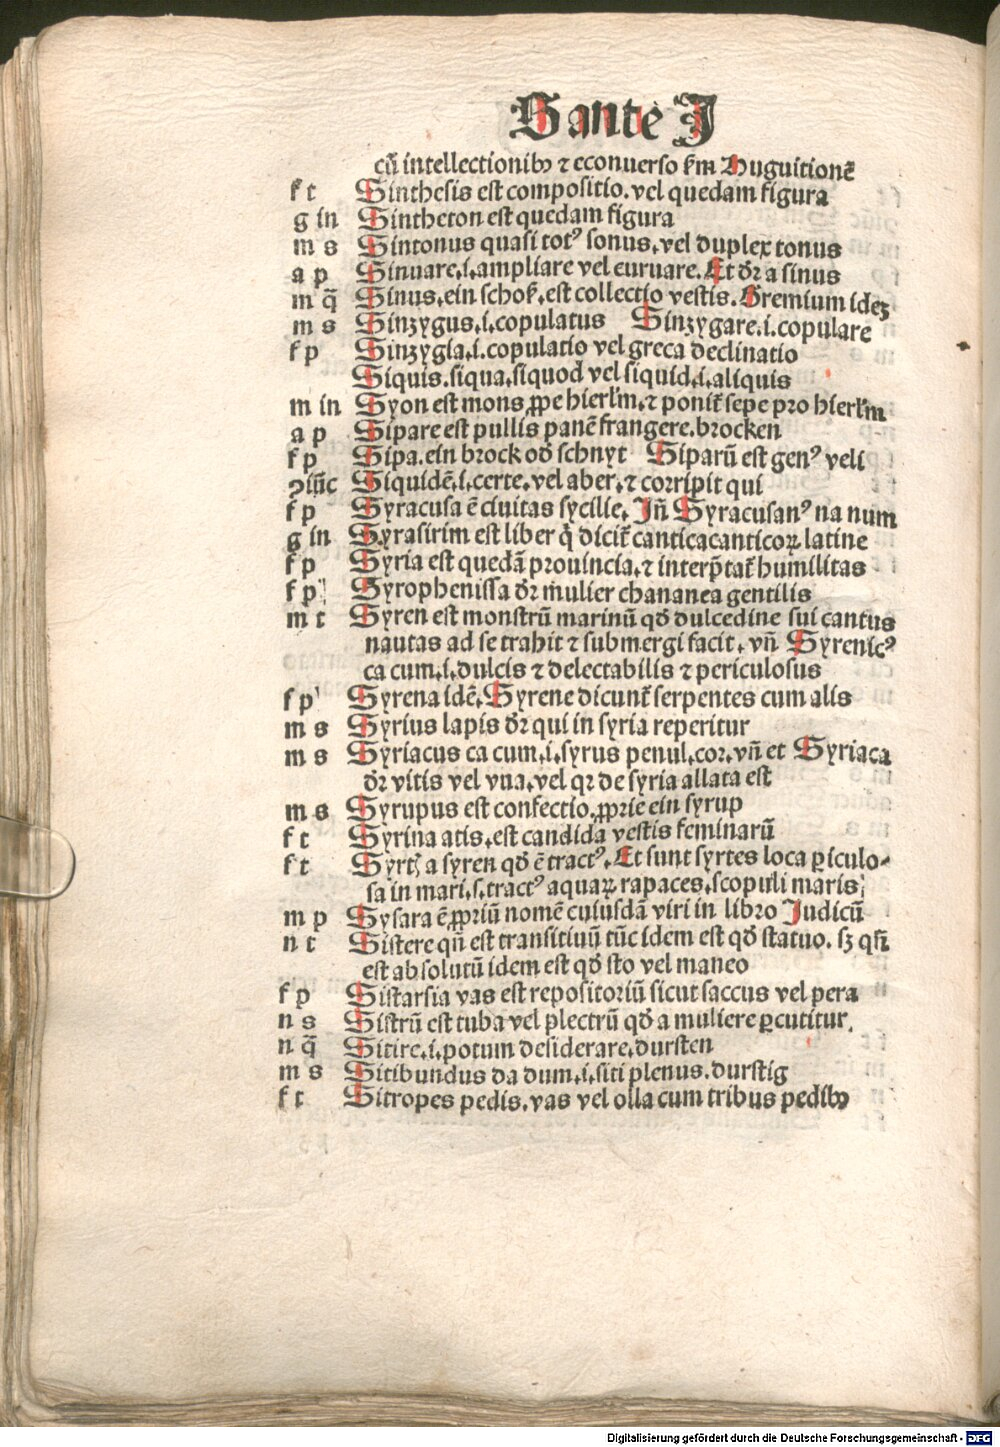 S ante J
cū intellectionibꝰ ⁊ econuerso ẜm Huguitionē
f t Sinthesis est compositio. vel quedam figura
g in Sintheton est quedam figura
m s Sintonus quasi totꝰ sonus. vel duplex tonus
a p Sinuare .i. ampliare vel curuare. Et dr̄ a sinus
m q̄ Sinus. ein schoß. est collectio vestis. Gremium ideꝫ
m s Sinzygus .i. copulatus Sinzygare .i. copulare
f p Sinzygia .i. copulatio vel greca declinatio
Siquis. siqua. siquod vel siquid .i. aliquis
m in Syon est mons ꝓpe hierl'm. ⁊ ponit᷑ sepe pro hierl'm
a p Sipare est pullis panē frangere. brocken
f p Sipa. ein brock od' schnyt Siparū est genꝰ veli
ꝯiūc Siquidē .i. certe. vel aber. ⁊ corripit qui
f p Syracusa ē ciuitas sycilie. Jn̄ Syracusanꝰ na num
g in Syrasirim est liber q̄ dicit᷑ canticacanticoꝝ latine
f p Syria est quedā prouincia. ⁊ interp̄tat᷑ humilitas
f p Syrophenissa dr̄ mulier chananea gentilis
m t Syren est monstrū marinū qd' dulcedine sui cantus
nautas ad se trahit ⁊ submergi facit. vn̄ Syrenicꝰ
ca cum .i. dulcis ⁊ delectabilis ⁊ periculosus
f p Syrena idē. Syrene dicunt᷑ serpentes cum alis
m s Syrius lapis dr̄ qui in syria reperitur
m s Syriacus ca cum .i. syrus penul. cor. vn̄ et Syriaca
dr̄ vitis vel vua. vel qr de syria allata est
m s Syrupus est confectio. ꝓprie ein syrup
f t Syrina atis. est candida vestis feminarū
f t Syrtꝭ a syren qd' ē tractꝰ. Et sunt syrtes loca ꝑiculo-
sa in mari .s. tractꝰ aquaꝝ rapaces. scopuli maris
m p Sysara ē ꝓpriū nomē cuiusdā viri in libro Judicū
n t Sistere qn̄ est transitiuū tūc idem est qd' statuo. sꝫ qn̄
est absolutū idem est qd' sto vel maneo
f p Sistarsia vas est repositoriū sicut saccus vel pera
n s Sistrū est tuba vel plectrū qd' a muliere ꝑcutitur.
n q̄ Sitire .i. potum desiderare. dursten
m s Sitibundus da dum .i. siti plenus. durstig
f t Sitropes pedis. vas vel olla cum tribus pedibꝰ
Digitalisierung gefördert durch die Deutsche Forschungsgemeinschaft - DFG